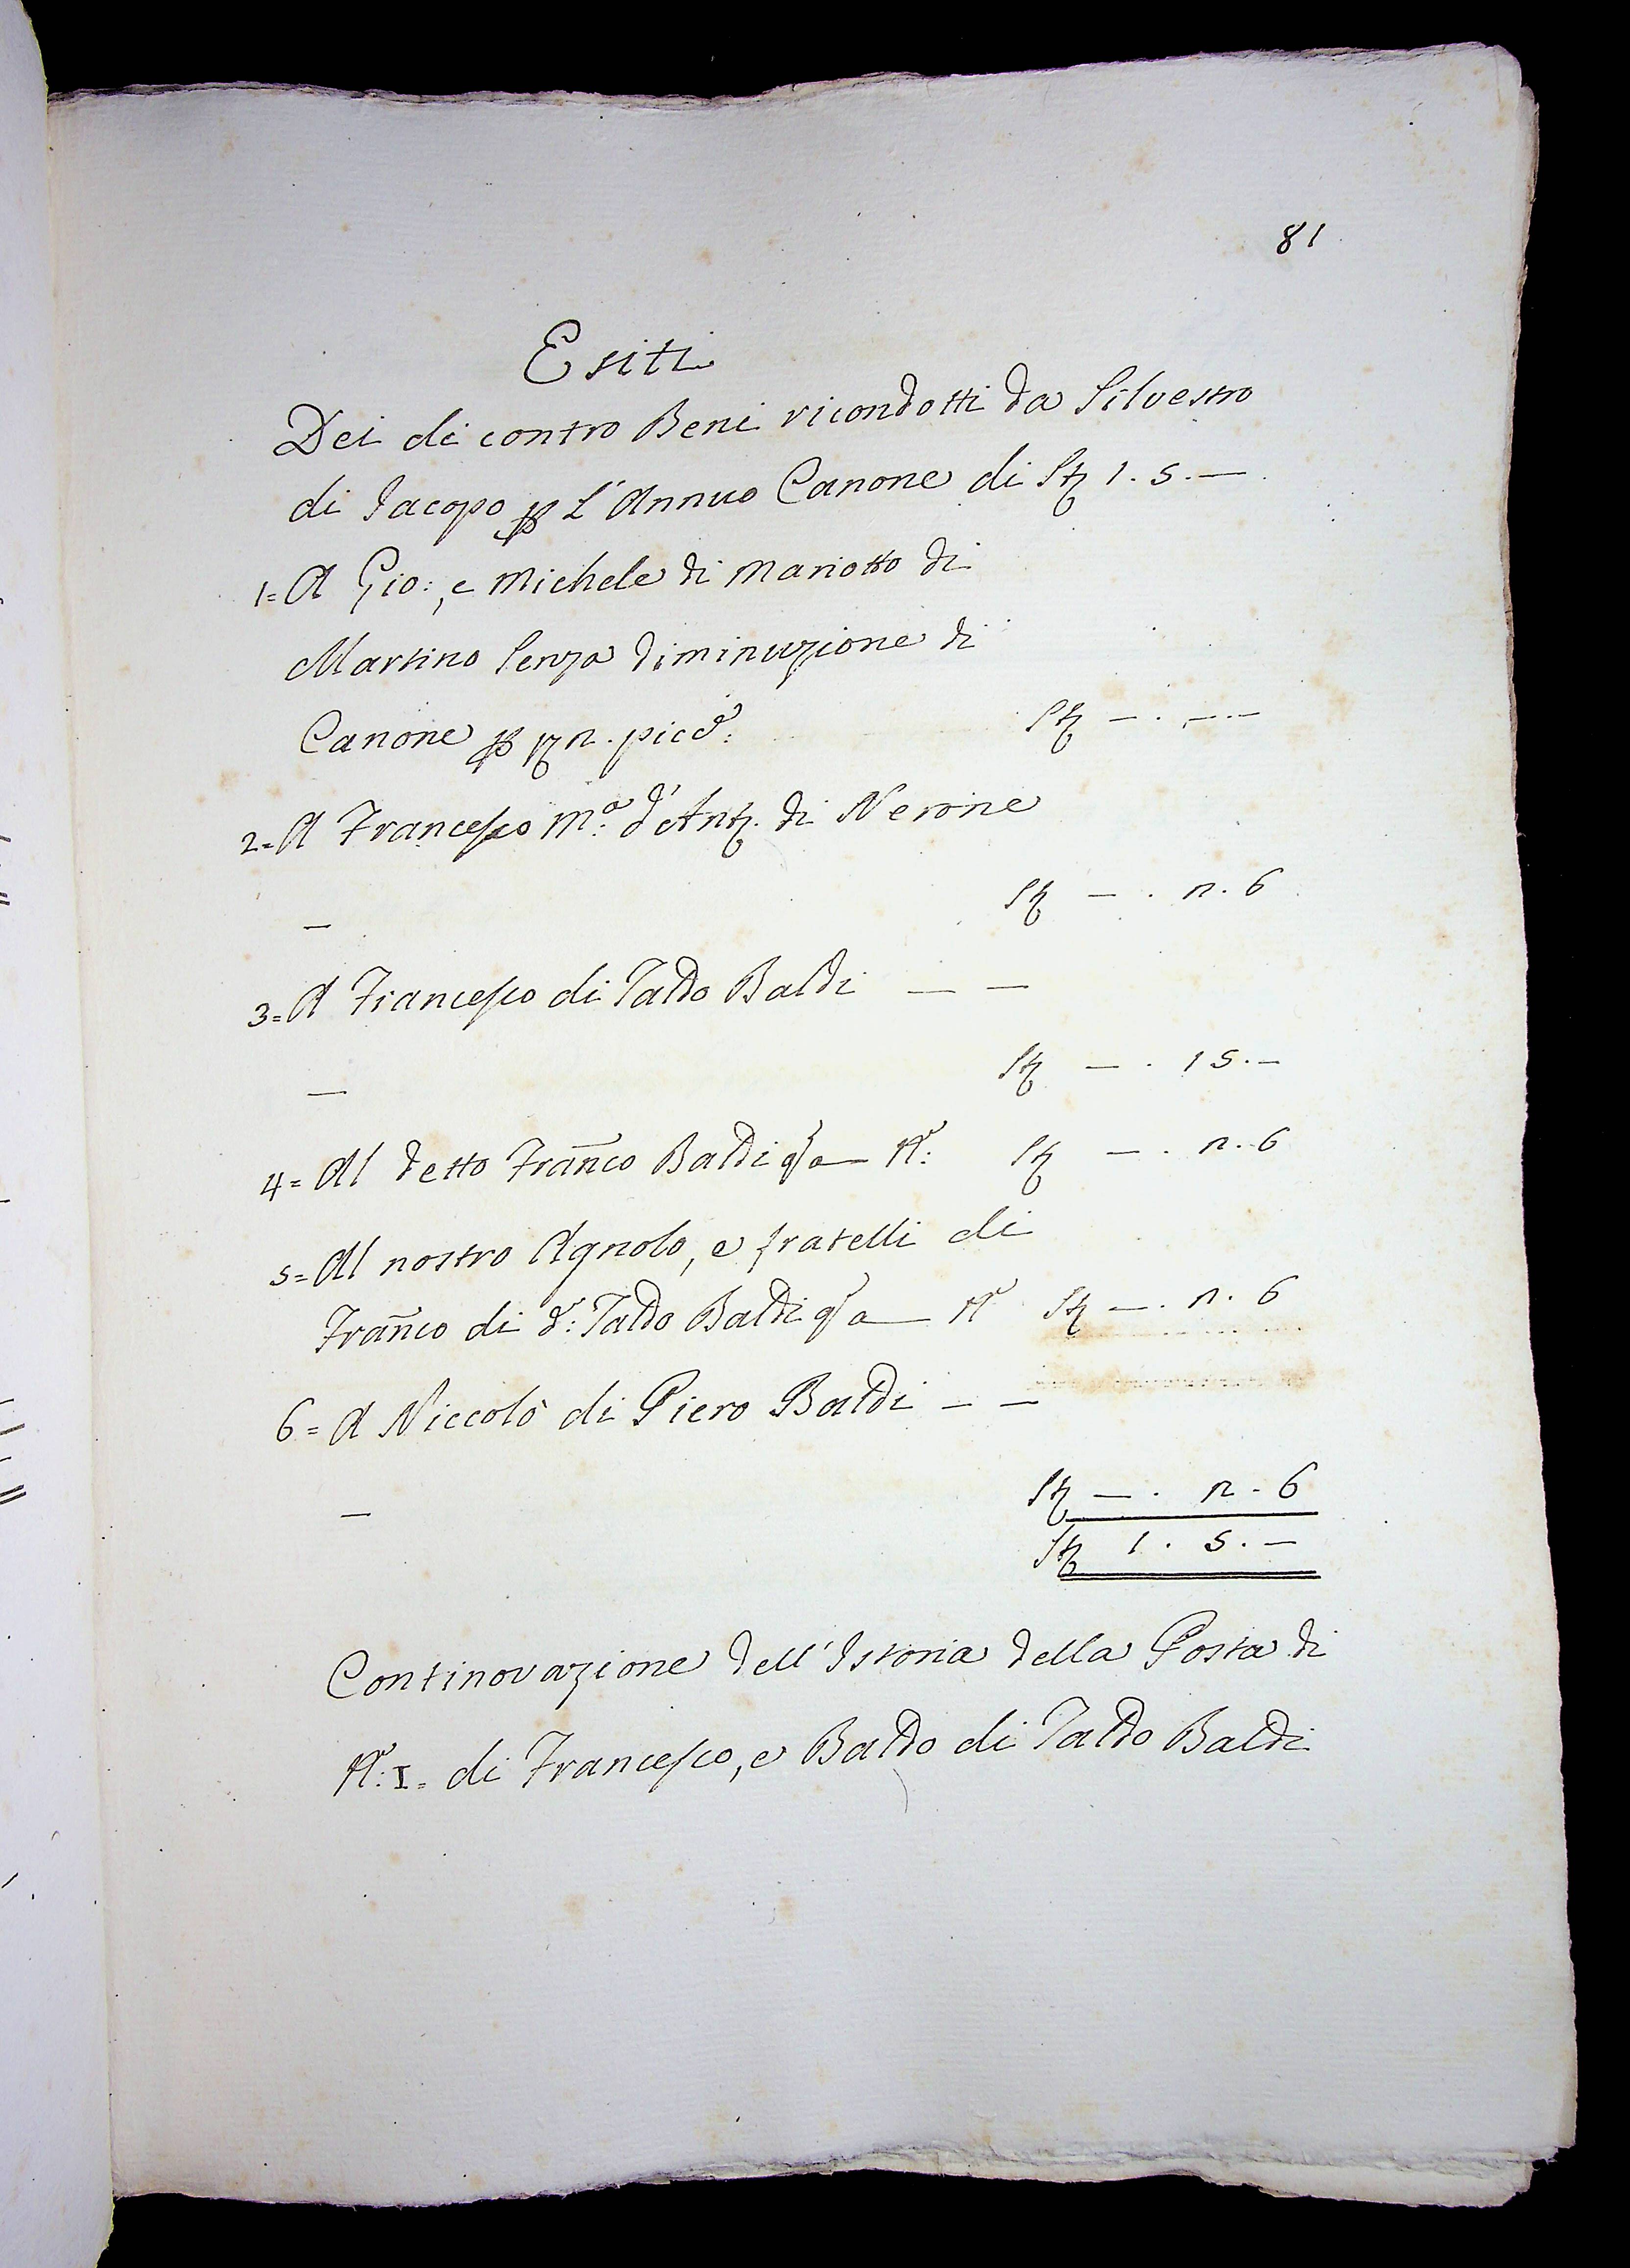 81
Esiti
Dei di contro Beni ricondotti da Silvestro
di Jacopo p L'Annuo Canone di St 1. 5. —
1= A Gio:, e Michele di Mariotto di
Martino Senza diminuzione di
Canone p n. picc: St —. —. —
2= A Francesco M.º d'Ant. di Nerone
— St —. n. 6
3= A Francesco di Taldo Baldi — —
— St —. 15. —
4= Al detto Franco Baldi — N: St —. n. 6
5= Al nostro Agnolo, e fratelli di
Franco di d: Taldo Baldi — N St —. n. 6
6= A Niccolò di Piero Baldi — —
— St —. n. 6
St 1. 5. —
Continovazione dell'Istoria della Posta di
N: I= di Francesco, e Baldo di Taldo Baldi